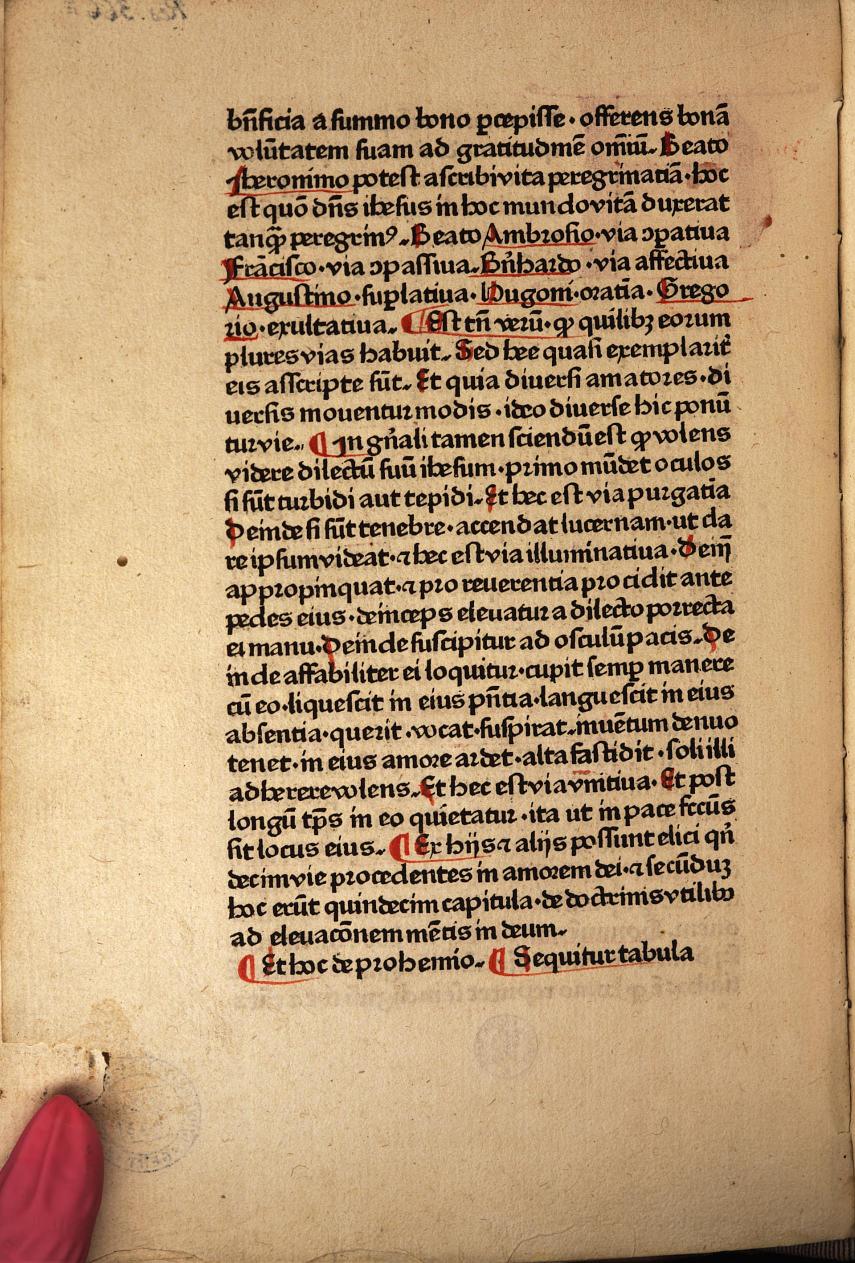 bn̄ficia a summo bono ꝑcepisse · offerens bonā
volūtatem suam ad gratitudinē om̄iū. Beato
Iheronimo potest ascribi vita peregrinatiā · hoc
est quō dn̄s ihesus in hoc mundo vitā duxerat
tanqꝫ peregrinꝰ. Beato Ambrosio · via ↄpatiua
Frācisco · via ↄpassiua. Bn̄hardo · via affectiua
Augustino · suꝑlatiua · Hugoni · oratīa · Grego
rio · exultatiua. ¶ Est tn̄ verū · ꝙ quilibꝫ eorum
plures vias habuit. Sed hee quasi exemplarit̄
eis asscripte sūt. Et quia diuersi amatores · di
uersis mouentur modis · ideo diuerse hic ponū
tur vie. ¶ In gn̄ali tamen sciendū est ꝙ volens
videre dilectū suū ihesum · primo mūdet oculos
si sūt turbidi aut tepidi. Et hec est via purgatīa
Deinde si sūt tenebre · accendat lucernam · ut cla
re ipsum videat · ⁊ hec est via illuminatiua · Dein̄
appropinquat · ⁊ pro reuerentia procidit ante
pedes eius · deinceps eleuatur a dilecto porrecta
ei manu · Deinde suscipitur ad osculū pacis. De
inde affabiliter ei loquitur · cupit semꝑ manere
cū eo · liquescit in eius pn̄tia · languescit in eius
absentia · querit · vocat · suspirat · inuētum denuo
tenet · in eius amore ardet · alta fastidit · soli illi
adherere volens. Et hec est via vnitiua · Et post
longū tp̄s in eo quietatur · ita ut in pace fccūs
sit locus eius. ¶ Ex hijs ⁊ alijs possunt elici qn̄
decim vie procedentes in amorem dei · ⁊ secūduꝫ
hoc erūt quindecim capitula · de doctrinis vtilibꝰ
ad eleuacōnem mētis in deum.
¶ Et hoc de prohemio. ¶ Sequitur tabula